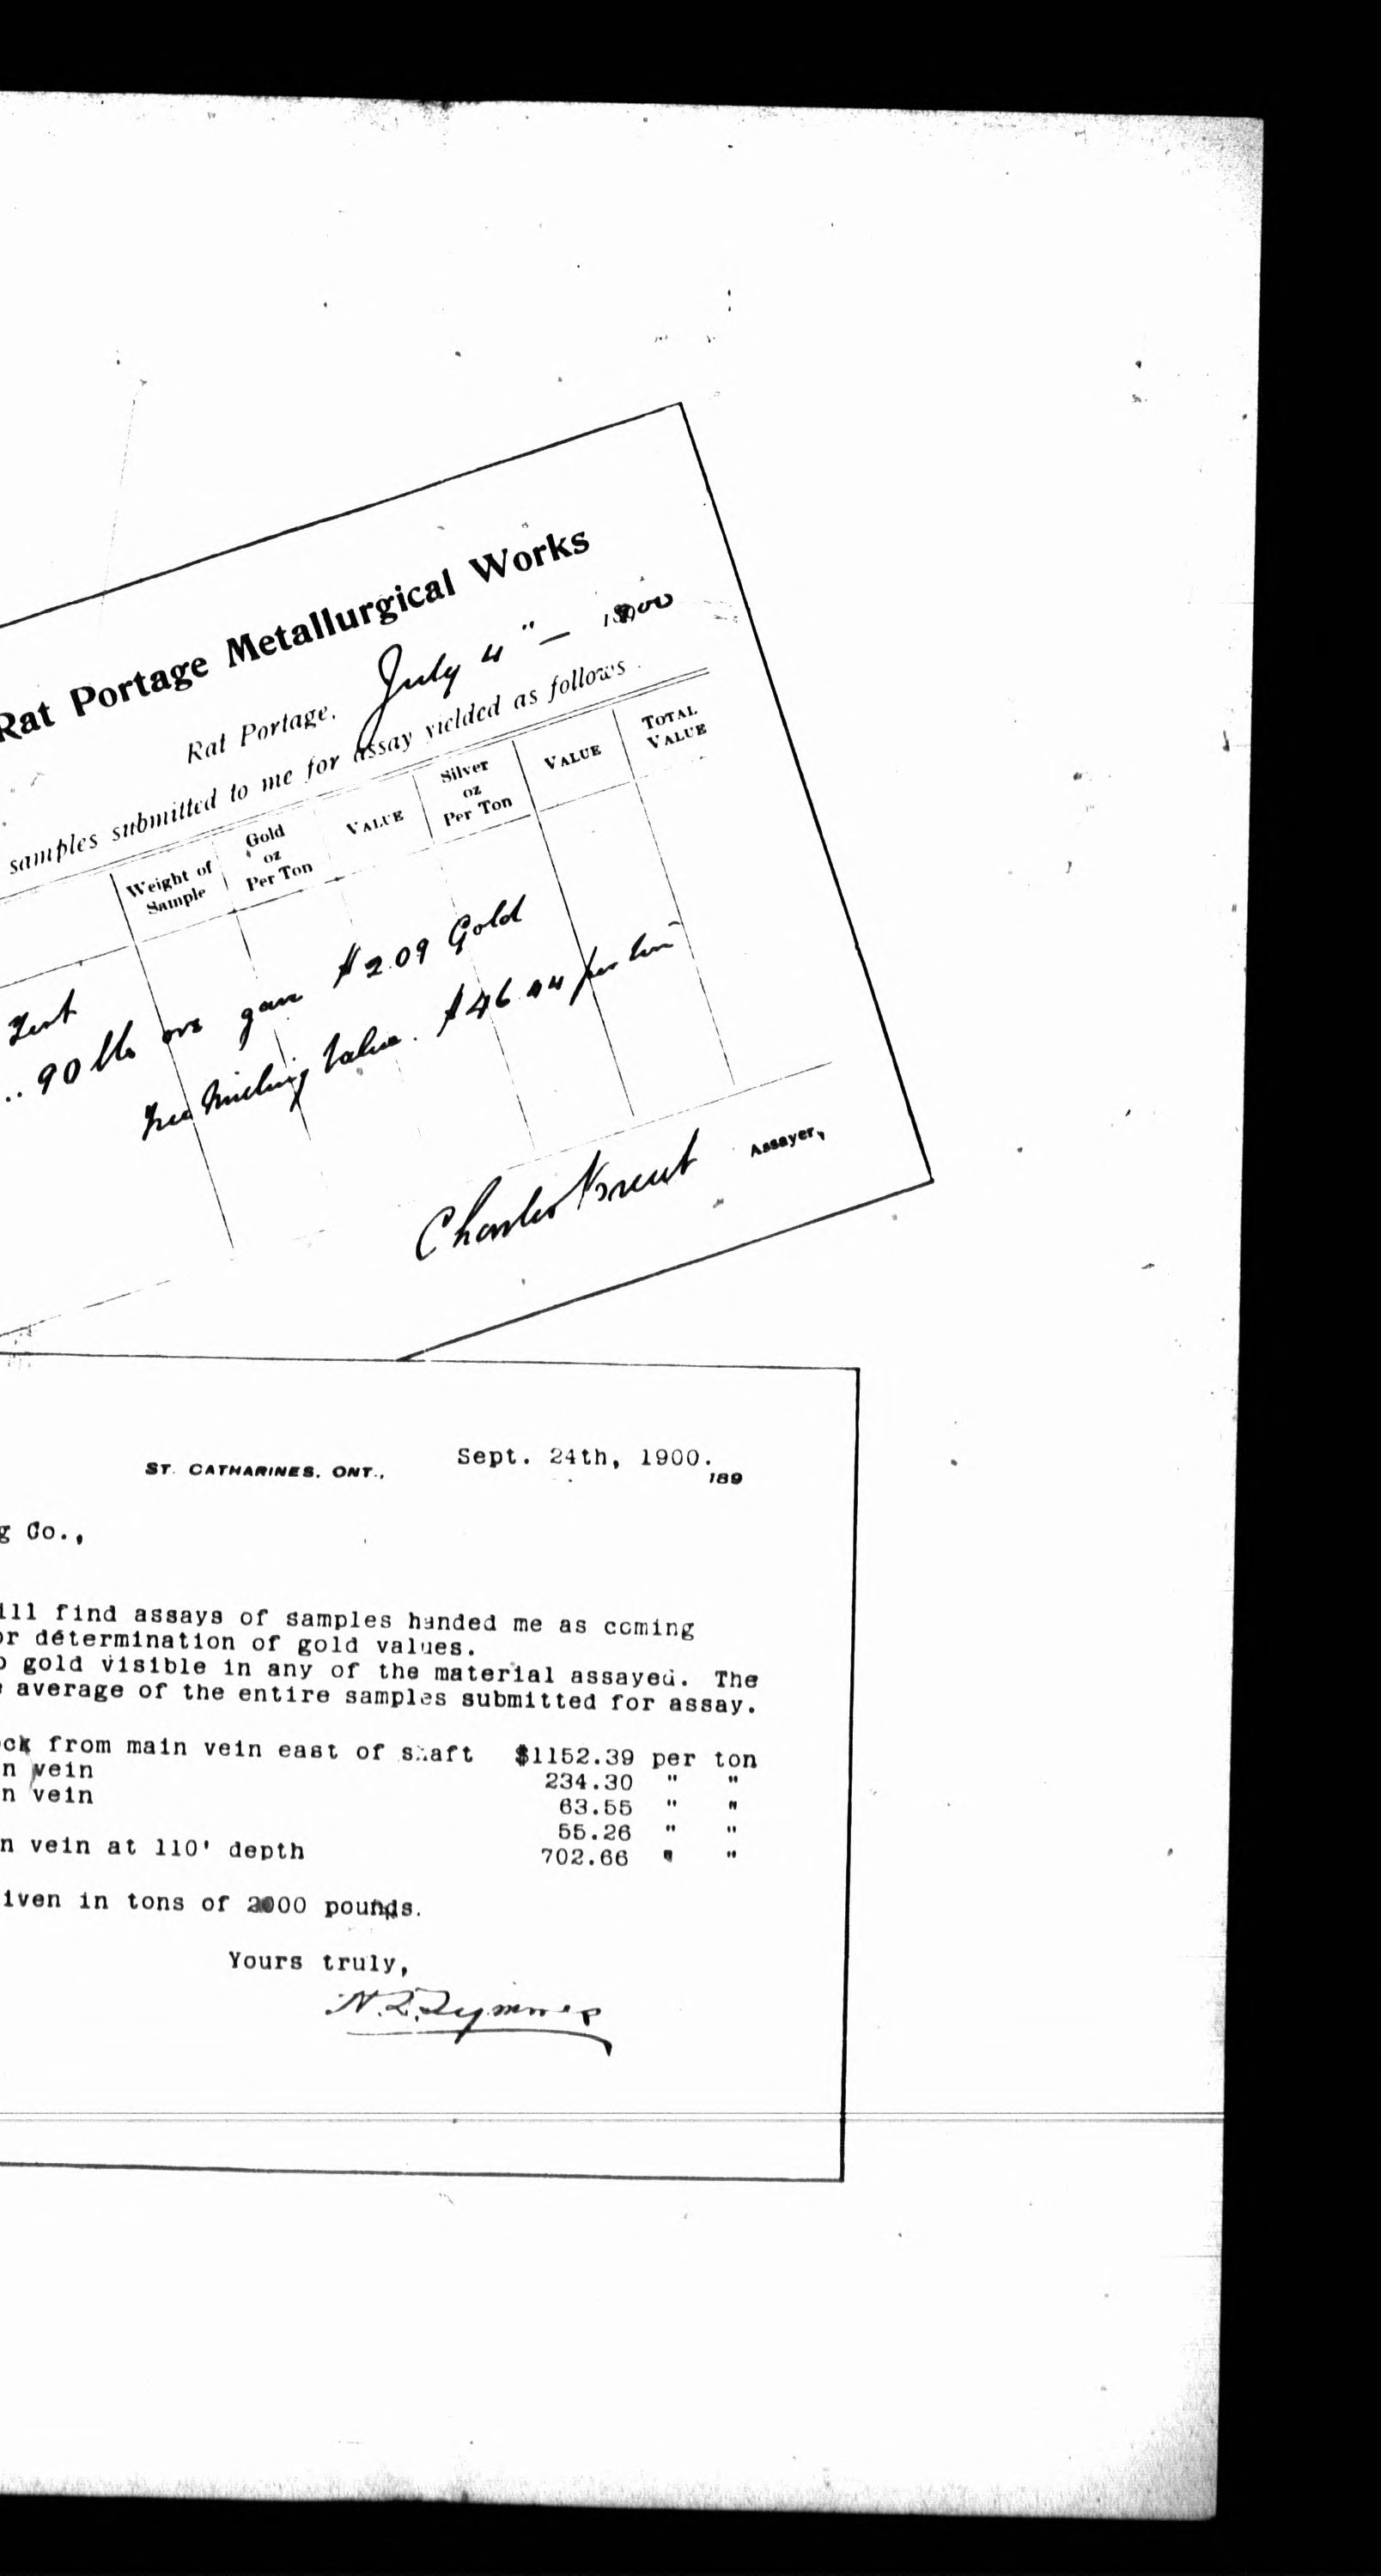 Rat Portage Metallurgical Works
Rat Portage, July 4" — 1900
samples submitted to me for assay yielded as follows
Weight of Sample
Gold oz Per Ton
VALUE
Silver oz Per Ton
VALUE
TOTAL VALUE
Test
.. 90 lbs ore gave $2.09 Gold
Free Milling Value. $46.44 per ton
Charles Brent Assayer,
ST. CATHARINES, ONT., Sept. 24th, 1900.
189
g Co.,
ill find assays of samples handed me as coming
or determination of gold values.
o gold visible in any of the material assayed. The
e average of the entire samples submitted for assay.
ock from main vein east of shaft $1152.39 per ton
n vein 234.30 " "
n vein 63.55 " "
55.26 " "
n vein at 110' depth 702.66 " "
iven in tons of 2000 pounds.
Yours truly,